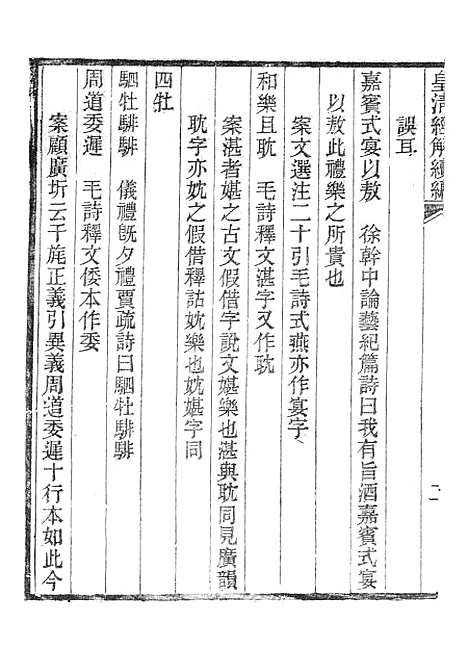 皇清經解續編
誤耳
嘉賓式宴以敖　徐幹中論藝紀篇詩曰我有旨酒嘉賓式宴
以敖此禮樂之所貴也
案文選注二十引毛詩式燕亦作宴字
和樂且耽　毛詩釋文湛字又作耽
案湛者媅之古文假借字說文媅樂也湛與耽同見廣韻
耽字亦妉之假借釋詁妉樂也妉媅字同
四牡
駟牡騑騑　儀禮旣夕禮賈疏詩曰駟牡騑騑
周道委遲　毛詩釋文倭本作委
案顧廣圻云干旄正義引異義周道委遲十行本如此今